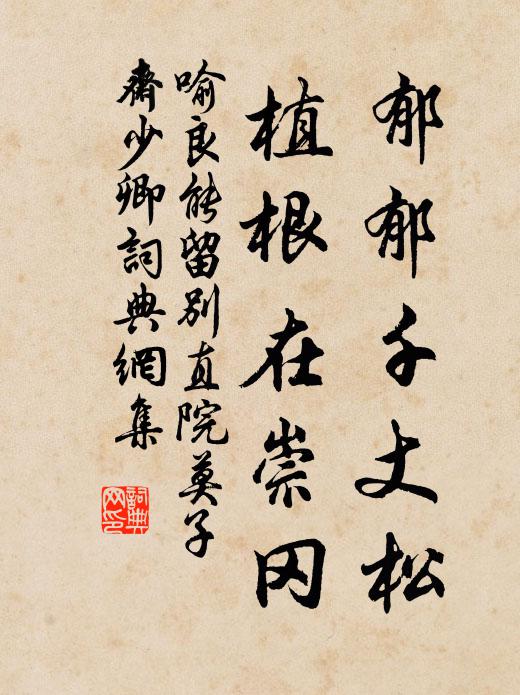 郁郁千丈松
植根在崇冈
喻良能留别直院莫子
齋少卿詞典網集
詞典
网印